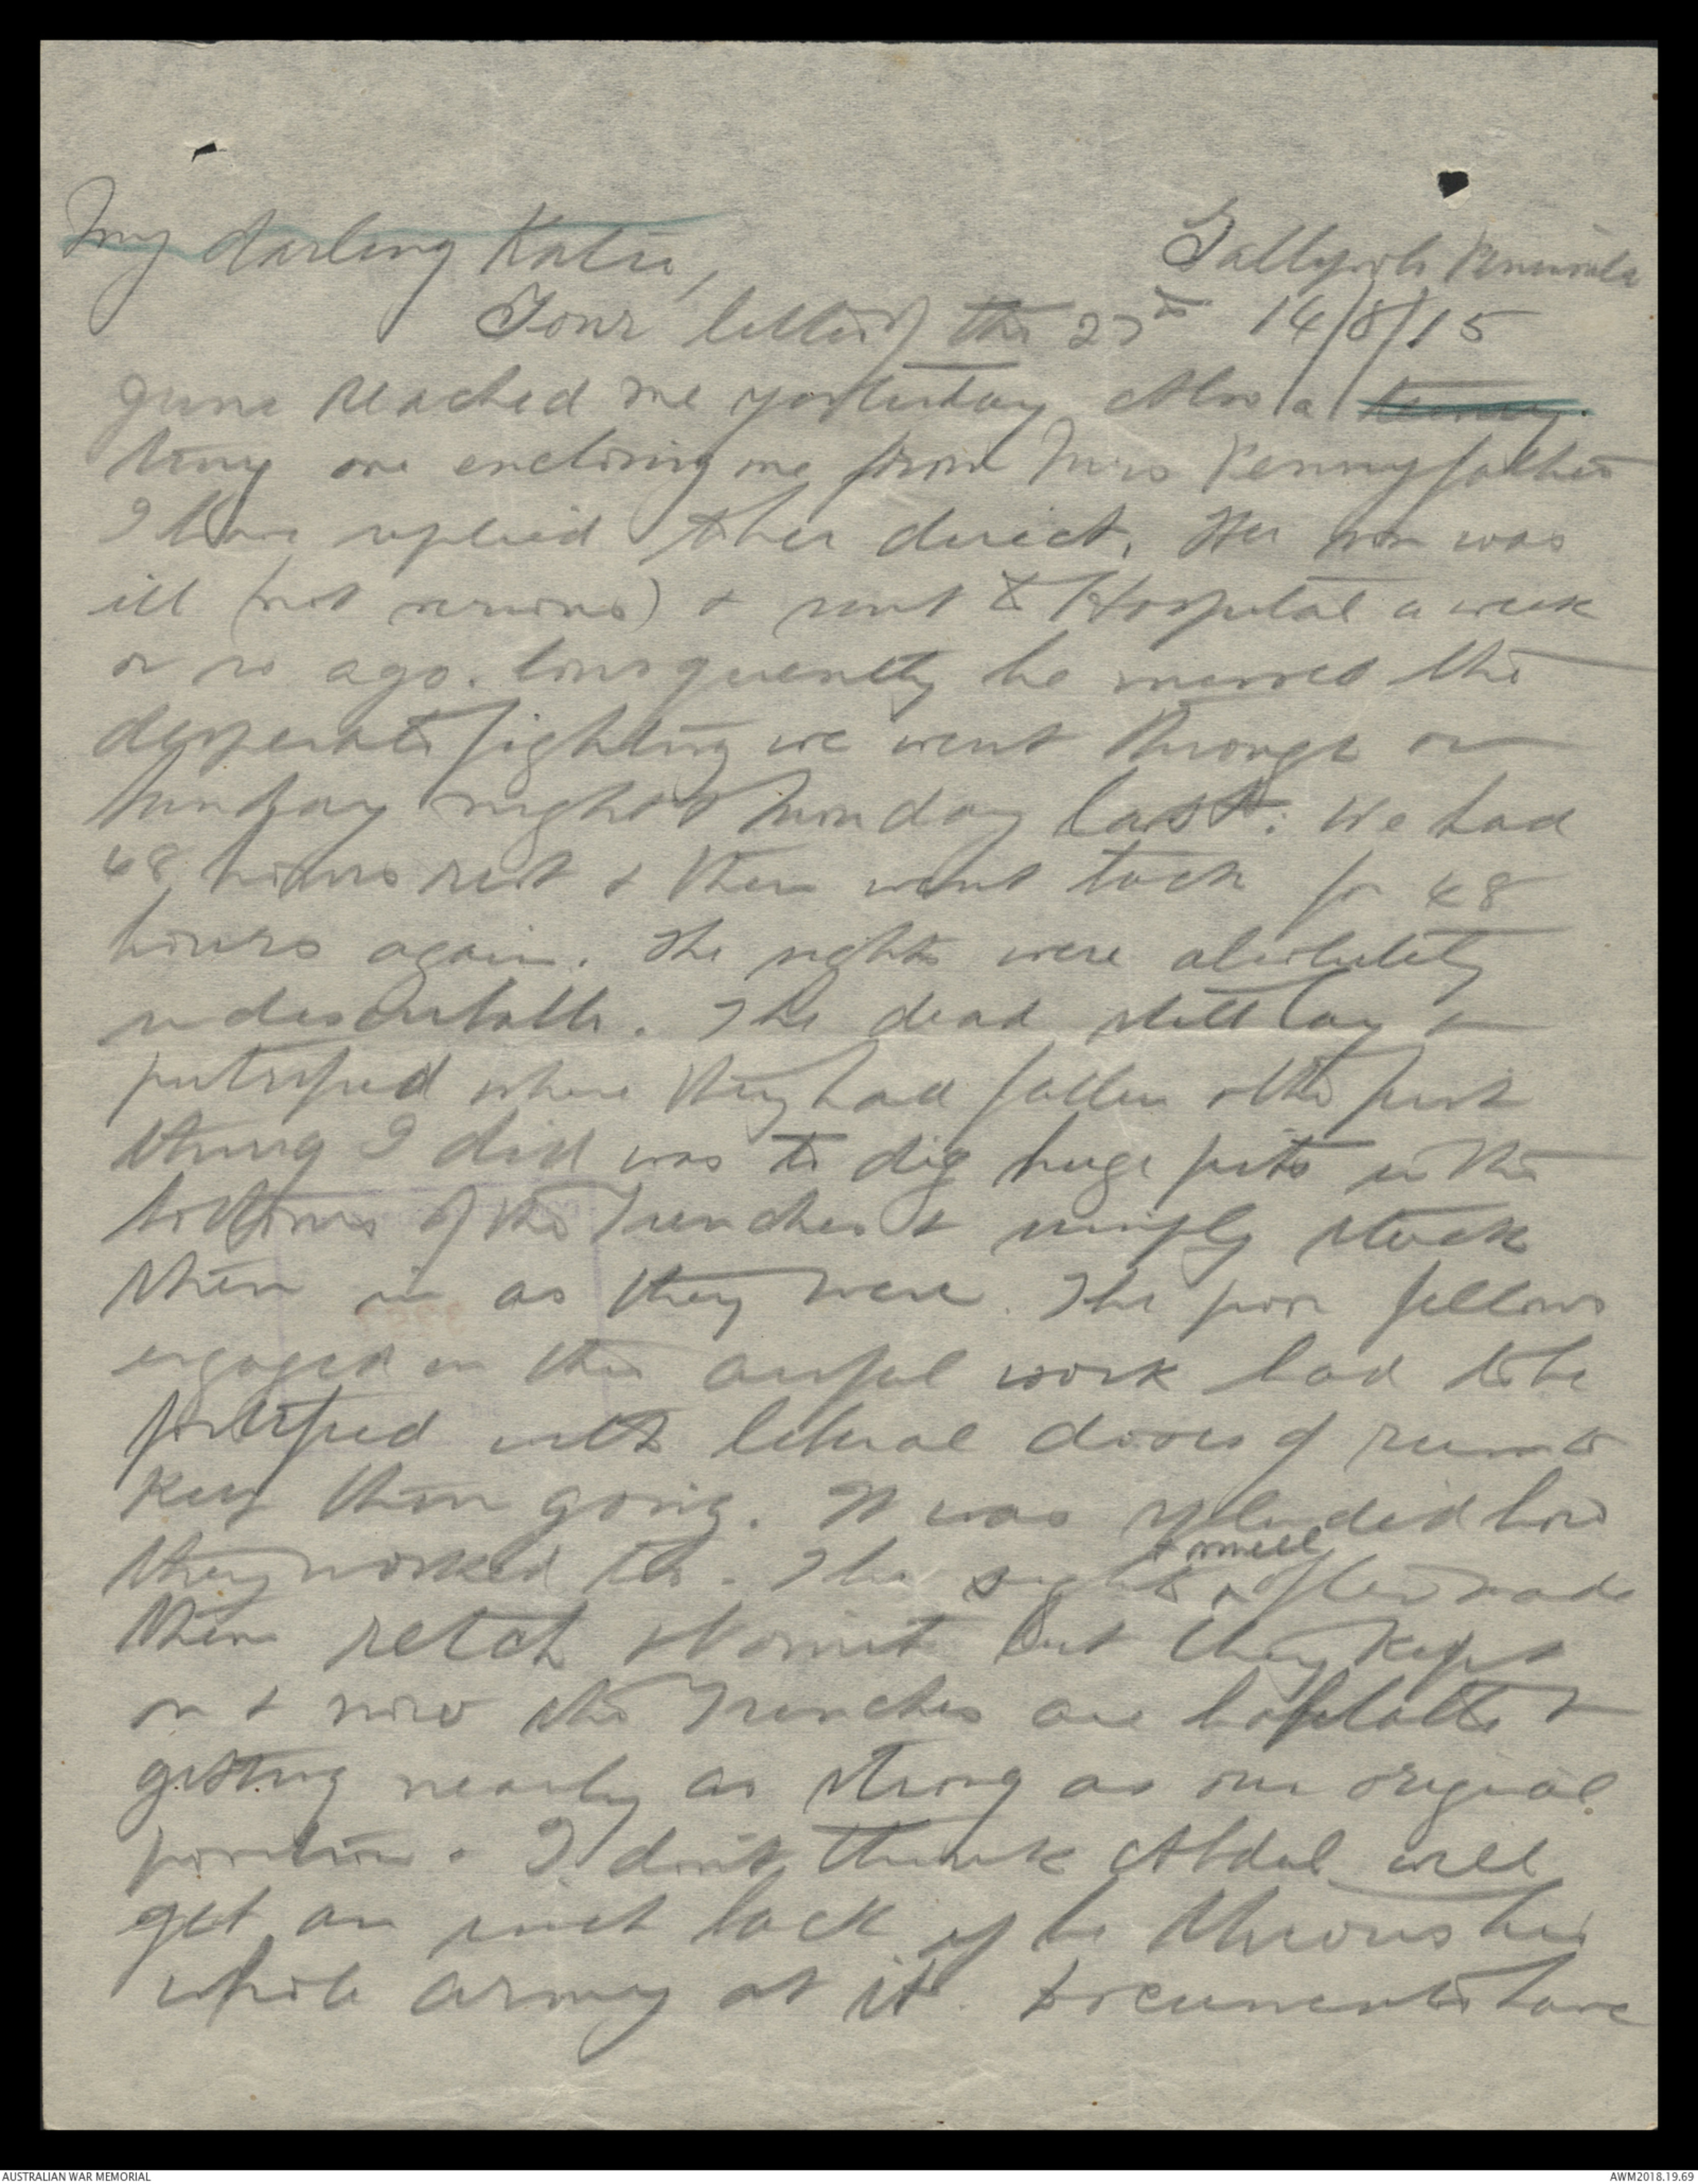 My darling Katie,
Gallipoli Peninsula
14/8/15
Your letter of the 27th
June reached me yesterday Also a
tiny one enclosing one from Mrs Pennyfather
I have replied to her direct. Her son was
ill (not serious) & sent to Hospital a week
or so ago. Consequently he missed the
desperate fighting we went through on
Sunday night & Monday last. We had
48 hours rest & then went back for 48
hours again. The sights were absolutely
indescribable. The dead still lay &
putrified where they had fallen & the first
thing I did was to dig huge pits in the
bottoms of the Trenches & simply stack
them in as they were. The poor fellows
engaged on this awful work had to be
fortified with liberal doses of rum to
keep them going. It was splendid how
they worked tho. The sights & smell often made
them retch & vomit but they kept
on & now the Trenches are habitable &
getting nearly as strong as our original
position. I don't think Abdul will
get an inch back if he throws his
whole army at it. Documents have
AUSTRALIAN WAR MEMORIAL
AWM2018.19.69